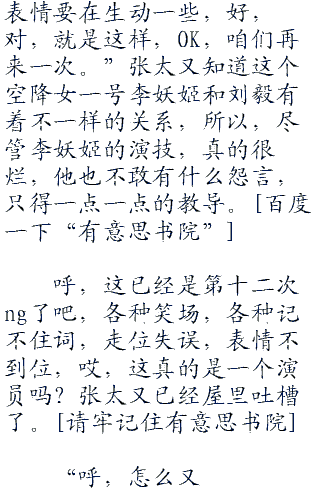 表情要在生动一些，好，
对，就是这样，OK，咱们再
来一次。”张太又知道这个
空降女一号李妖姬和刘毅有
着不一样的关系，所以，尽
管李妖姬的演技，真的很
烂，他也不敢有什么怨言，
只得一点一点的教导。[百度
一下“有意思书院”]
呼，这已经是第十二次
ng了吧，各种笑场，各种记
不住词，走位失误，表情不
到位，哎，这真的是一个演
员吗？张太又已经屋里吐槽
了。[请牢记住有意思书院]
“呼，怎么又